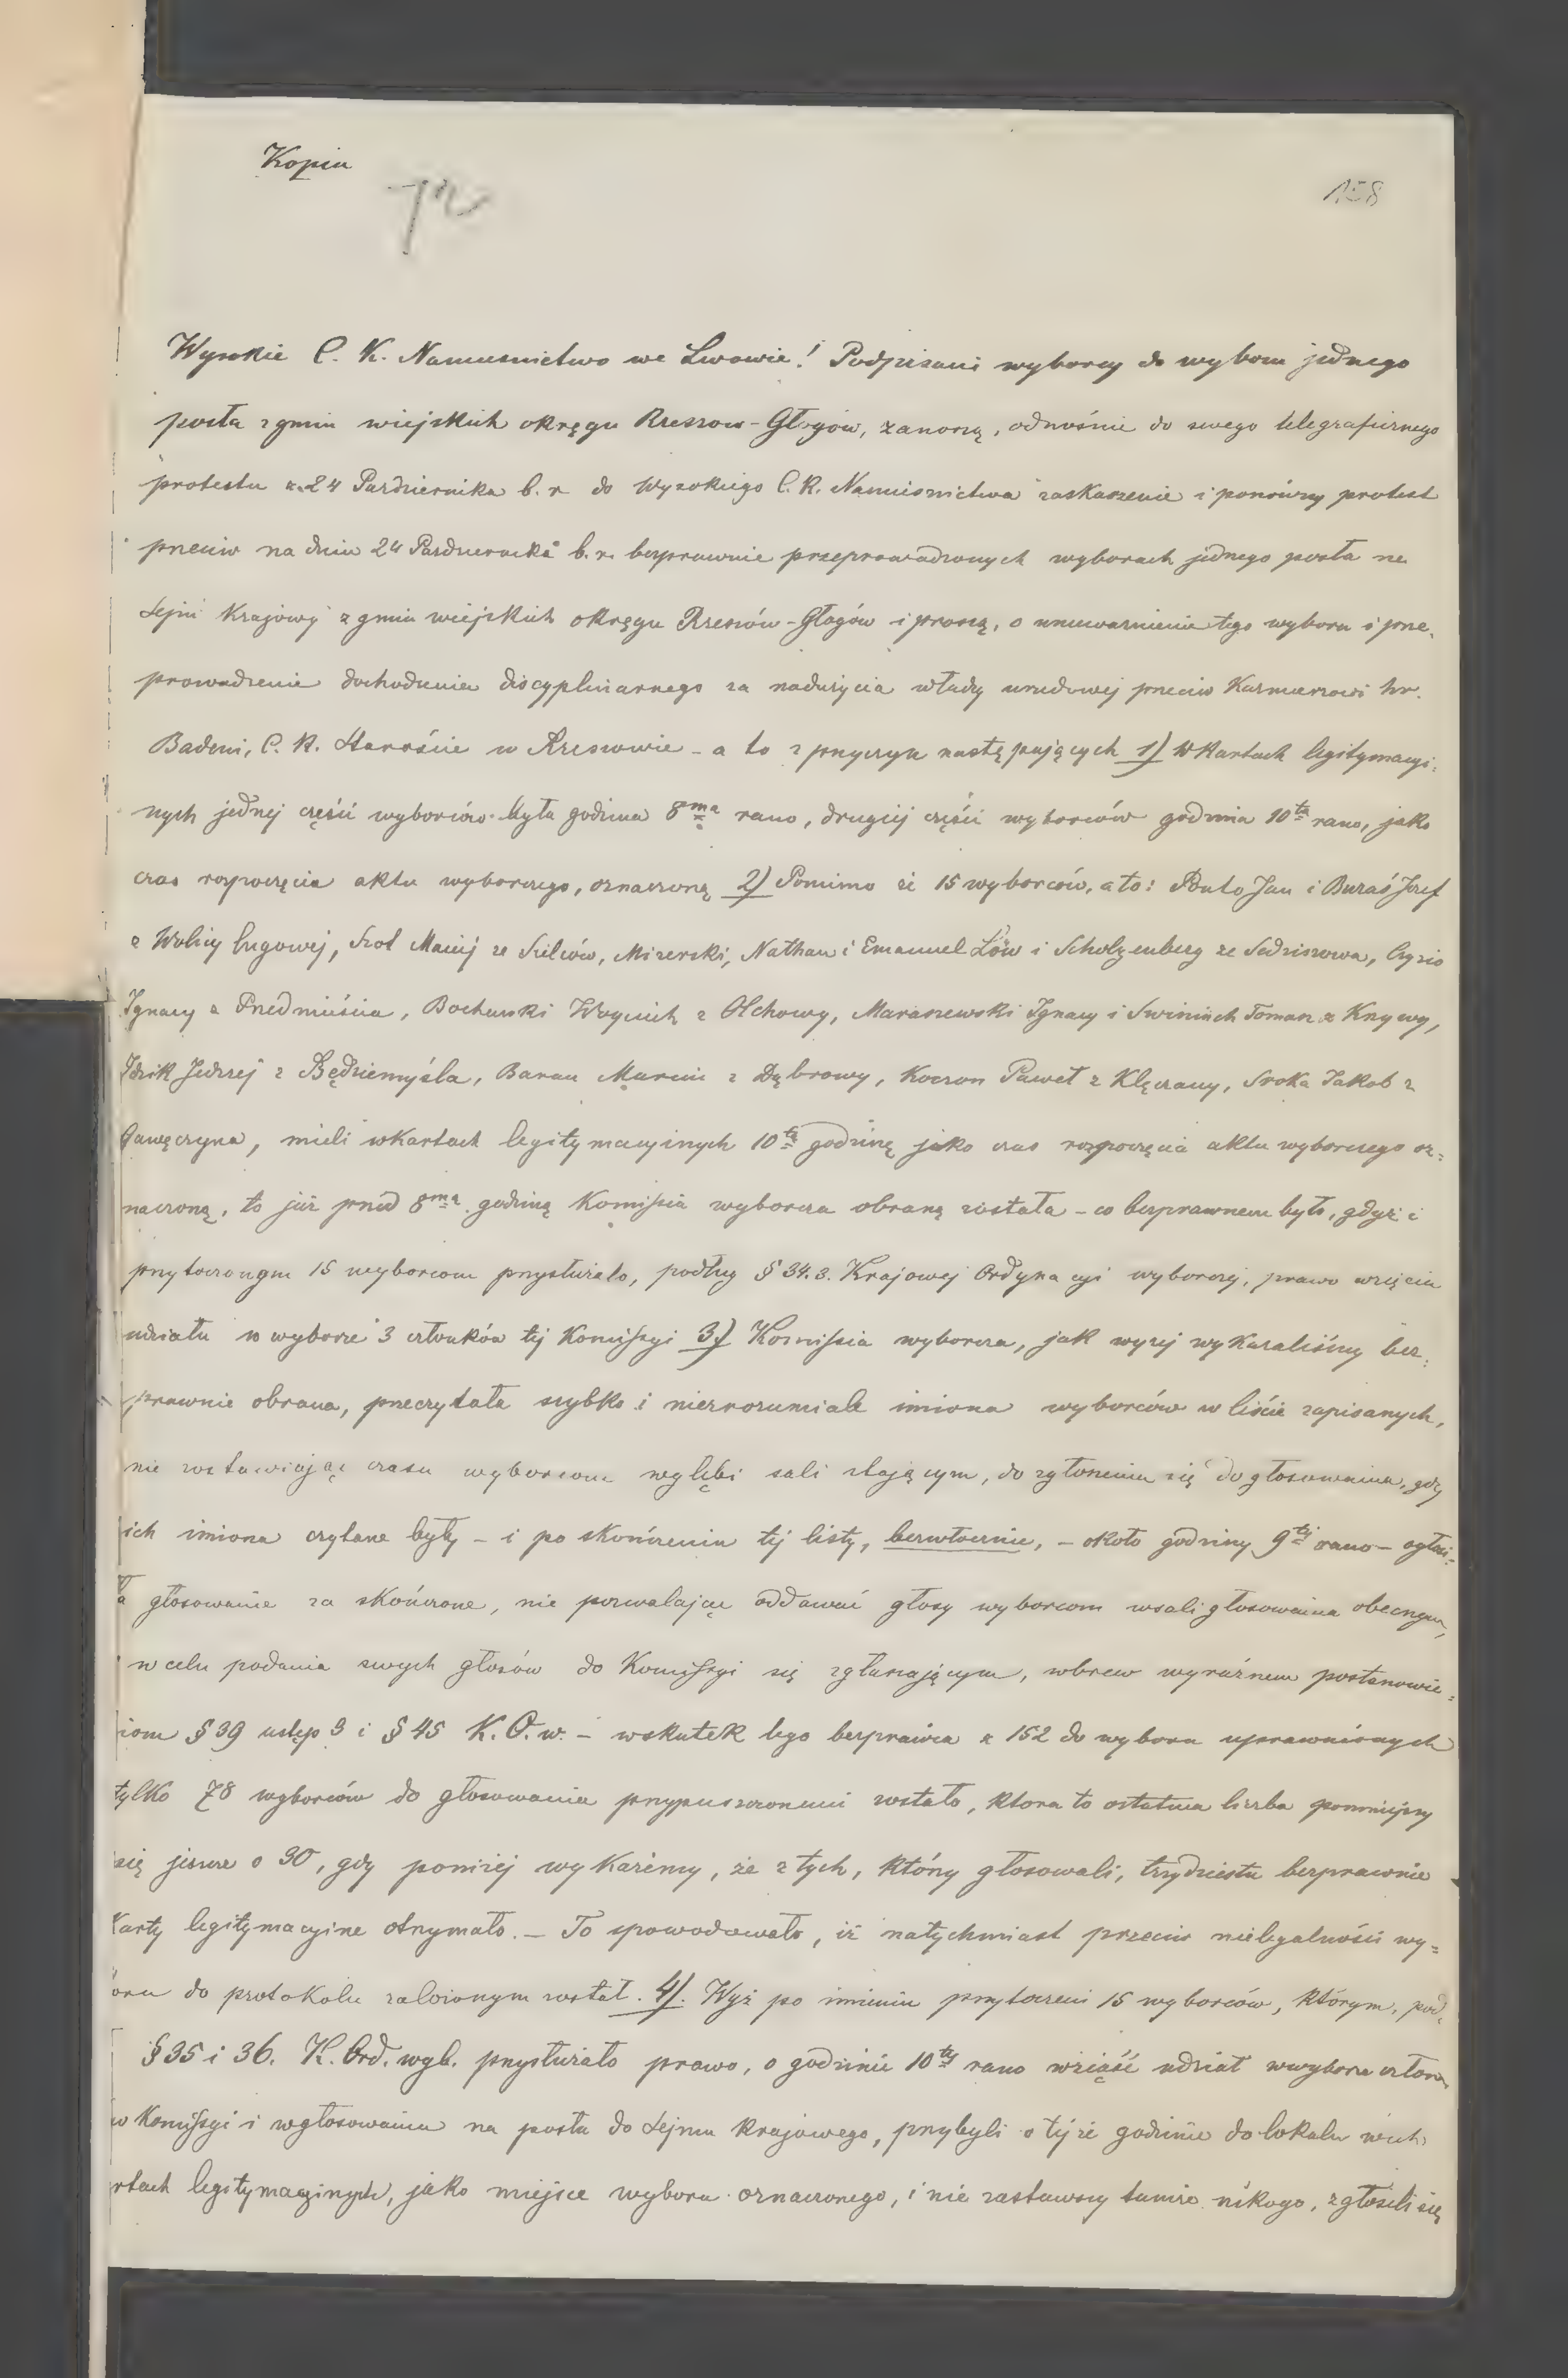 Kopia
72
158
Wysokie C. K. Namiesnictwo we Lwowie! Podpisani wyborcy do wyboru jednego
posła z gmin wiejskich okręgu Rzeszow-Głogów, zanoszą, odnośnie do swego telegraficznego
protestu z 24 Pazdziernika b. r. do Wysokiego C. K. Namiesnictwa zaskarzenie i ponówny protest
przeciw na dniu 24 Pazdziernika b. r. bezprawnie przeprowadzonych wyborach jednego posła na
Sejm Krajowy z gmin wiejskich okręgu Rzeszów-Głogów i proszą, o unieważnienie tego wyboru i prze-
prowadzenie dochodzenia discyplinarnego za nadużycia władzy urzędowej przeciw Kazmierzowi hr.
Badeni, C. K. Staroście w Rzeszowie - a to z przyczyn następujących 1) W kartach legitymacyi-
nych jednej części wyborców była godzina 8ma rano, drugiej części wyborców godzina 10ta rano, jako
czas rozpoczęcia aktu wyborczego, oznaczoną 2) Pomimo że 15 wyborców, a to: Jan i Buraś Józef
z Wolicy ługowej, Szot Maciej ze Sielców, Mizerski, Nathan i Emanuel Löw i Scholzenberg ze Sedziszowa, Czyzio
Ignacy z Przedmieścia, Bocharski Woyciech z Olchowy, Maraszewski Ignacy i Swiniuch Toman z Krzywy,
Idzik Jedrzej z Będziemyśla, Baran Marcin z Dąbrowy, Koczon Paweł z Klęczany, Sroka Jakob z
Gawęczyna, mieli w kartach legitymacyinych 10tą godzinę jako czas rozpoczęcia aktu wyborczego oz-
naczoną, to już przed 8mą godziną Komissia wyborcza obraną została - co bezprawnem było, gdyż i
przytoczonym 15 wyborcom przysłużało, podług § 34. 3. Krajowej Ordynacyi wyborczej, prawo wzięcia
udziału w wyborze 3 członków tej Komissyi 3) Komissia wyborcza, jak wyzej wykazaliśmy bez-
prawnie obrana, przeczytała szybko i niezrozumiale imiona wyborców w liście zapisanych,
nie zostawiając czasu wyborcom w głębi sali stającym, do zgłoszenia się do głosowania, gdy
ich imiona czytane były - i po skończeniu tej listy, bezwłocznie, - około godziny 9tej rano - ogłosi-
ła głosowanie za skończone, nie pozwalając oddawać głosy wyborcom w sali głosowania obecnym,
w celu podania swych głosów do Komissyi się zgłaszającym, wbrew wyraźnem postanowie-
niom § 39 ustęp 3 i § 45 K. O. w. - wskutek tego bezprawia z 152 do wyboru uprawnionych
tylko 78 wyborców do głosowania przypuszczonemi zostało, ktora to ostatnia liczba pomniejszy
się jeszcze o 30, gdy ponizej wykażemy, że z tych, którzy głosowali, trzydziestu bezprawnie
Karty legitymacyine otrzymało. - To spowodowało, iż natychmiast przeciw nielegalności wy-
boru do protokołu założonym został. 4). Wyż po imieniu przytoczeni 15 wyborców, którym, pod.
§ 35 i 36. K. Ord. wyb. przysłużało prawo, o godzinie 10tej rano wziąść udział w wyborze człon
w Komissyi i w głosowaniu na posła do Sejmu Krajowego, przybyli o tejże godzinie do lokalu w ich
rtach legitymacyinych, jako miejsce wyboru oznaczonego, i nie zastawszy tamże nikogo, zgłosili się